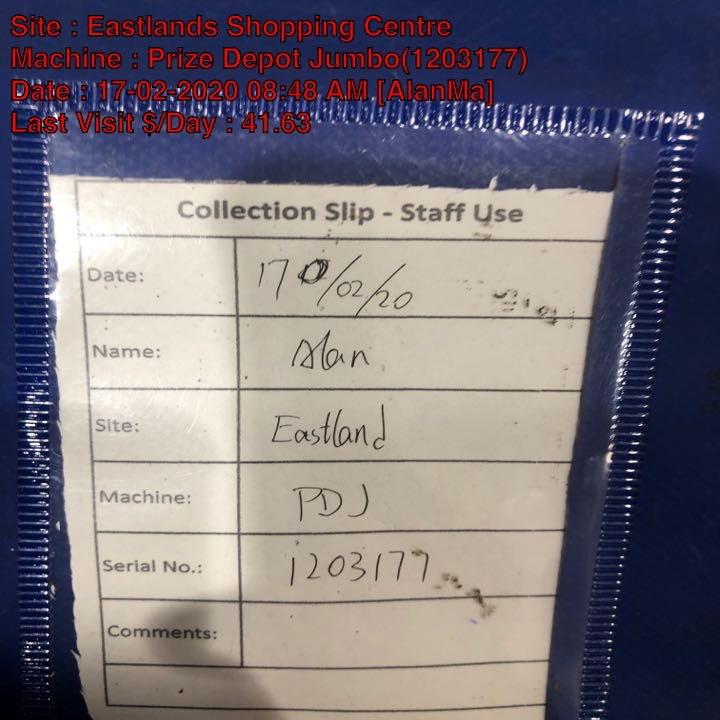 Site : Eastlands Shopping Centre
Machine : Prize Depot Jumbo(1203177)
Date : 17-02-2020 08:48 AM [AlanMa]
Last Visit $/Day : 41.63
Collection Slip - Staff Use
Date: 17 0/02/20
Name: Alan
Site: Eastland
Machine: PDJ
Serial No.: 1203177
Comments: